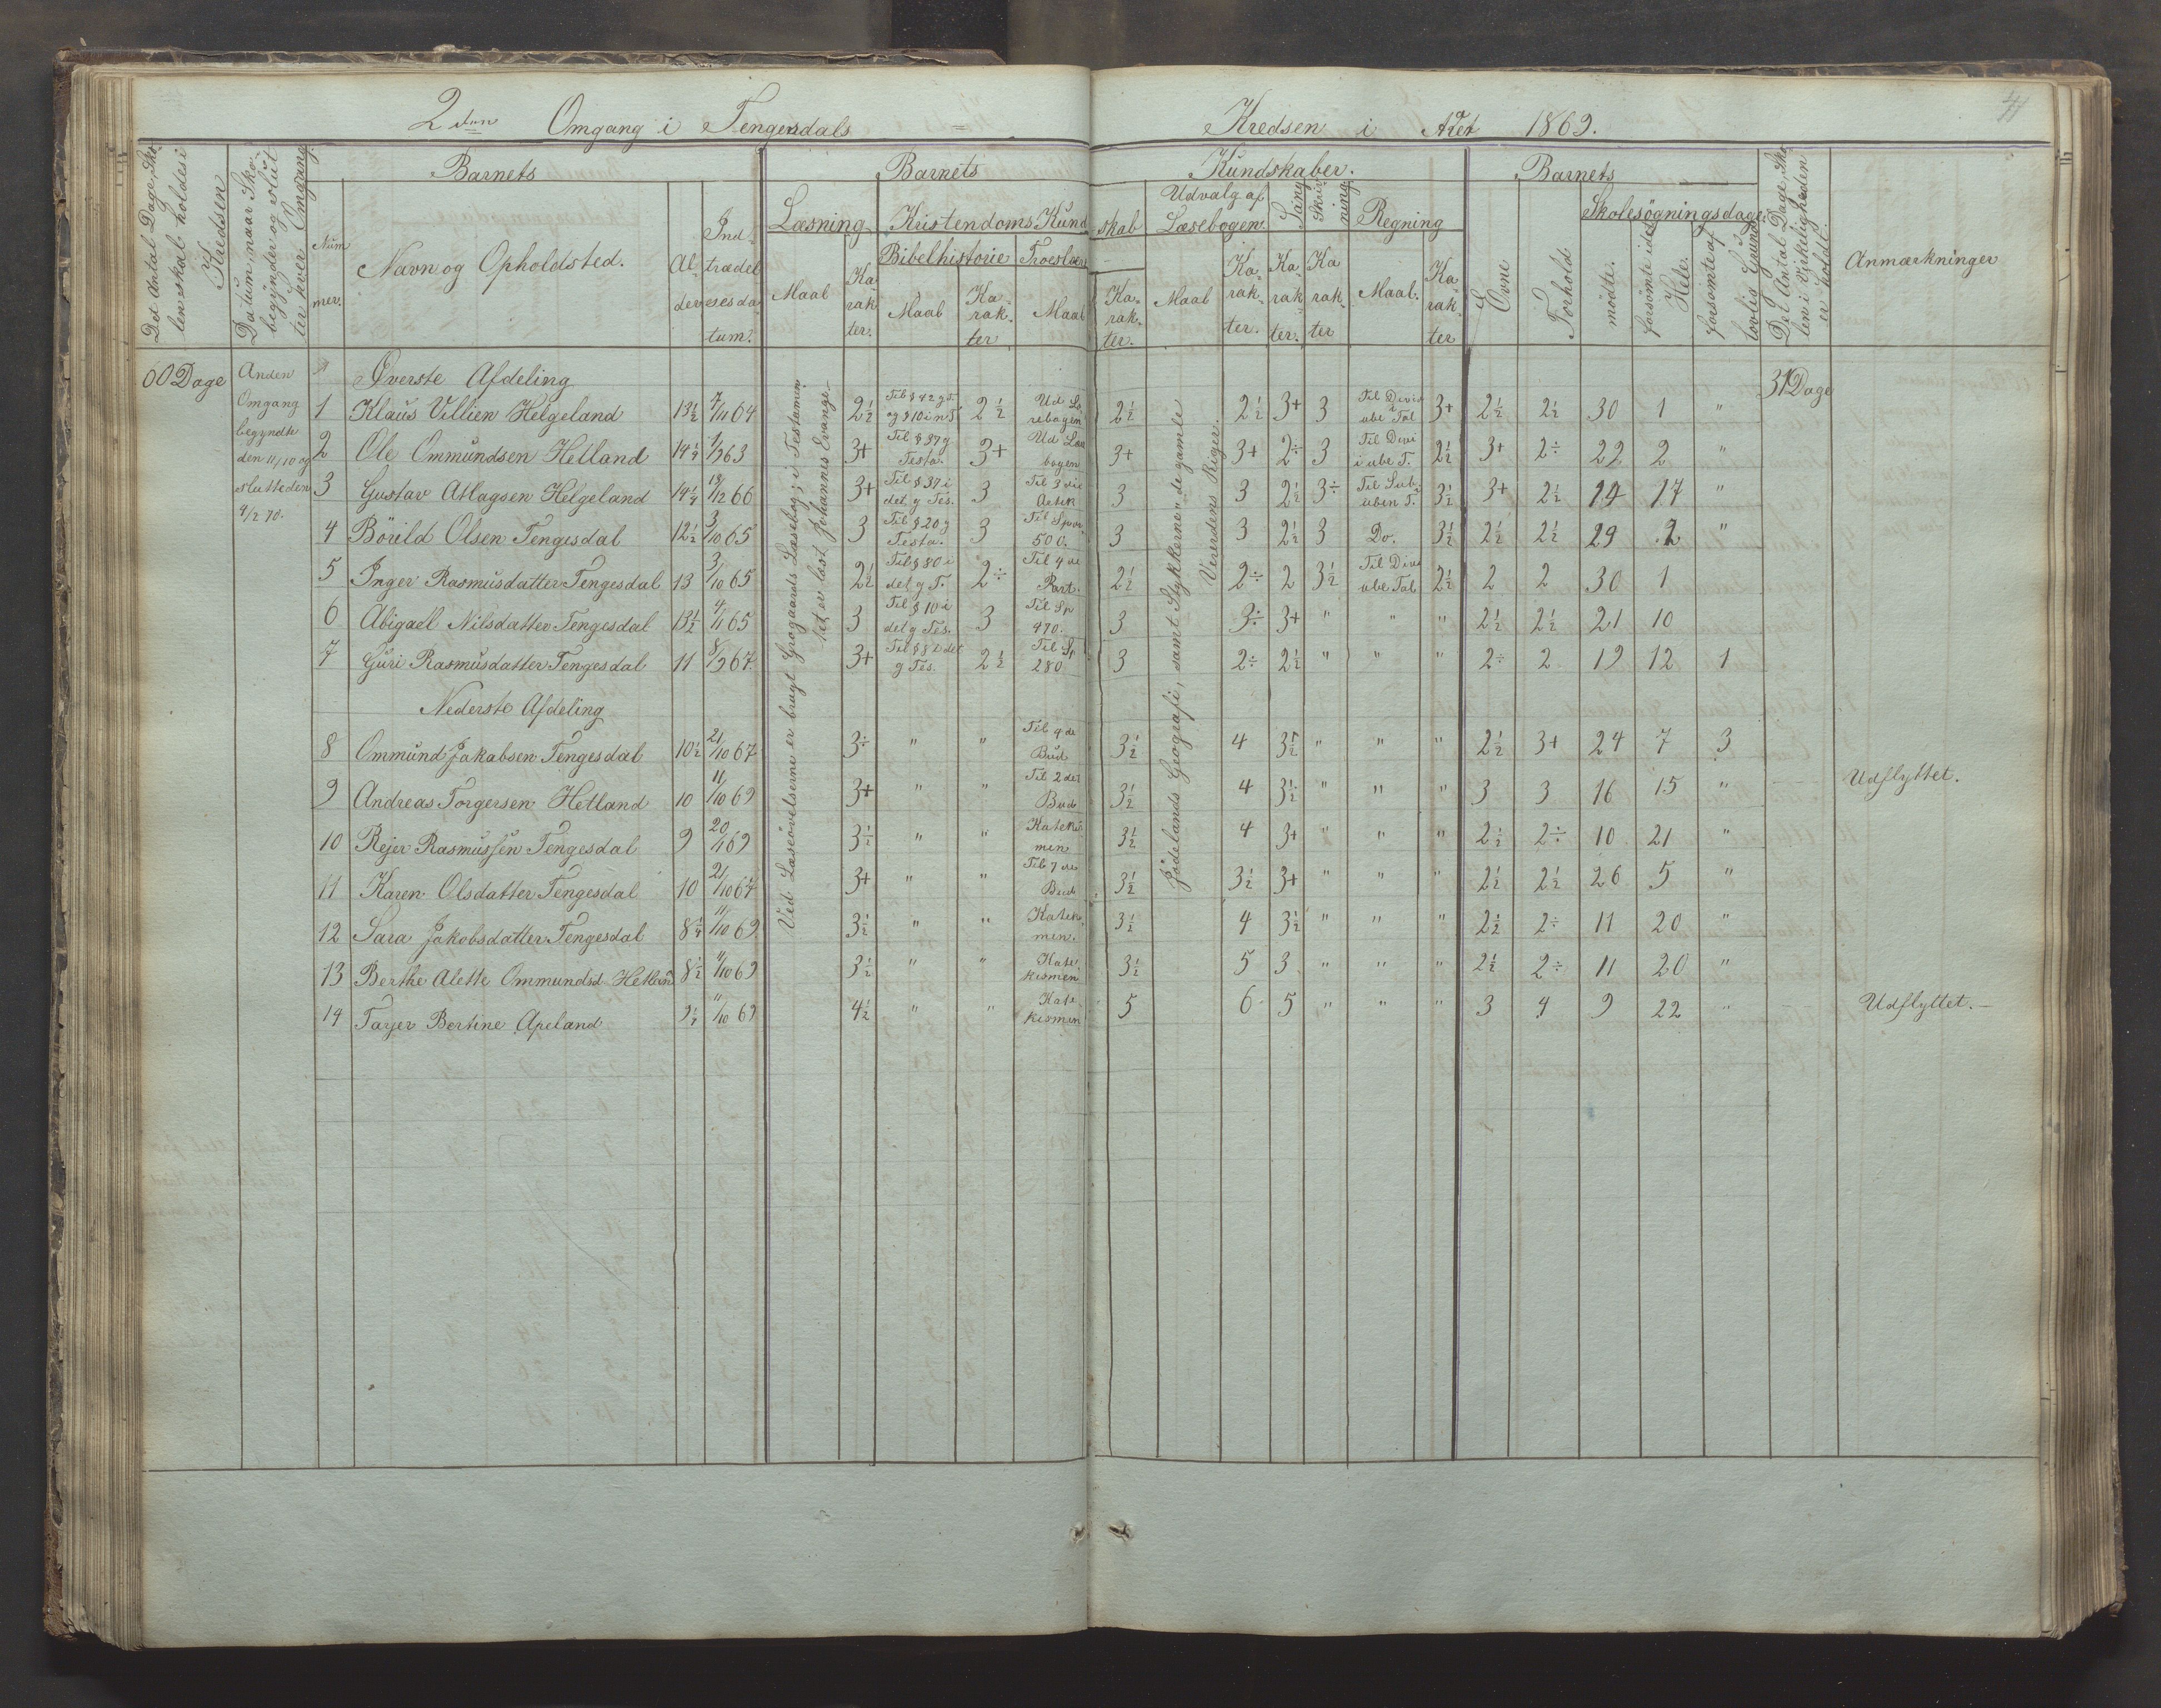 2den Omgang i Tengesdals Kredsen i Aaret 1869.
41
Det Antal Dage, Skolen skal holdes i Kredsen
Datum, naar Skolen begynder og slutter hver Omgang.
Barnets
Nummer.
Navn og Opholdsted.
Alder
Indtrædelsesdatum.
Barnets Kundskaber.
Læsning
Maal
Karakter.
Kristendoms Kundskab
Bibelhistorie
Maal
Karakter
Troeslære
Maal
Karakter.
Udvalg af Læsebogen.
Maal
Karakter.
Sang
Karakter.
Skrivning
Karakter
Regning
Maal.
Karakter
Barnets
Evne
Forhold
Skolesøgningsdage
mödte.
forsömte i det Hele.
forsömte af lovlig Grund
Det Antal Dage, Skolen i Virkeligheden er holdt.
Anmærkninger
60 Dage
Anden
Omgang
begyndte
den 11/10 og
sluttede den
4/2 70.
Ved Læseövelserne er brugt Jensgaards Læsebog; i Testamentet er læst Johannes Evange-
Födelands Geografi, samt Stykkerne "de gamle Verdens Riger.
31 Dage
Øverste Afdeling
1 Klaus Villien Helgeland 13½ 7/11 64 2½ Til § 42 g T. og § 10 i n T. 2½ Ud Lærebogen 2½ 2½ 3+ 3 Til Divis i ube Tal 3+ 2½ 2½ 30 1 "
2 Ole Ommundsen Hetland 14¼ 1/9 63 3+ Til § 37 g Testa. 3+ Ud Lærebogen 3+ 3+ 2÷ 3 Til Divi i ube T. 2½ 3+ 2÷ 29 2 "
3 Gustav Atlagsen Helgeland 14¼ 19/12 66 3+ Til § 37 i det g Tes. 3 Til 3die Artik 3 3 2½ 3÷ Til Sub. i uben T. 3½ 3+ 2½ 14 17 "
4 Börild Olsen Tengesdal 12½ 3/10 65 3 Til § 20 g Testa. 3 Til Spør 500. 3 3 2½ 3 Do. 3½ 2½ 2½ 29 2 "
5 Inger Rasmusdatter Tengesdal 13 3/10 65 2½ Til § 80 i det g T. 2÷ Til 4de Part. 2½ 2÷ 2 3½ Til Divi ube Tal 2½ 2 2 30 1
6 Abigael Nilsdatter Tengesdal 13½ 4/1 65 3 Til § 10 i det g Tes. 3 Til Sp 470. 3 3÷ 3+ " " " 2½ 2½ 21 10
7 Guri Rasmusdatter Tengesdal 11 8/9 67 3+ Til § 8 i det g Tes. 2½ Til Sp 280 3 2÷ 2½ " " " 2÷ 2 19 12 1
Nederste Afdeling
8 Ommund Jakabsen Tengesdal 10½ 21/10 67 3÷ " " Til 4de Bud 3½ 4 3½ " " " 2½ 3+ 24 7 3
9 Andreas Torgersen Hetland 10 11/10 69 3+ " " Til 2det Bud 3½ 4 3½ " " " 3 3 16 15 " Udflyttet.
10 Rejer Rasmussen Tengesdal 9 20/1 69 3½ " " Katekismen 3½ 4 3+ " " " 2½ 2÷ 10 21 "
11 Karen Olsdatter Tengesdal 10 21/10 67 3+ " " Til 7de Bud 3½ 3½ 3+ " " " 2½ 2½ 26 5 "
12 Sara Jakobsdatter Tengesdal 8¼ 11/10 69 3½ " " Katekismen. 3½ 4 3½ " " " 2½ 2÷ 11 20 "
13 Berthe Alette Ommundsd Hetland 8½ 11/10 69 3½ " " Katekismen 3½ 5 3 " " " 2½ 2÷ 11 20 "
14 Tayer Bertine Apeland 9¼ 11/10 69 4½ " " Katekismen 5 6 5 " " " 3 4 9 22 " Udflyttet.